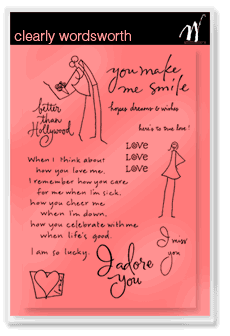 clearly wordsworth
W
you make
me smile
better
than
Hollywood
hopes dreams & wishes
here's to true love!
LOVE
LOVE
LOVE
When I think about
how you love me.
I remember how you care
for me when I'm sick,
how you cheer me
when I'm down,
how you celebrate with me
when life's good.
I am so lucky.
I miss
you
I adore
you